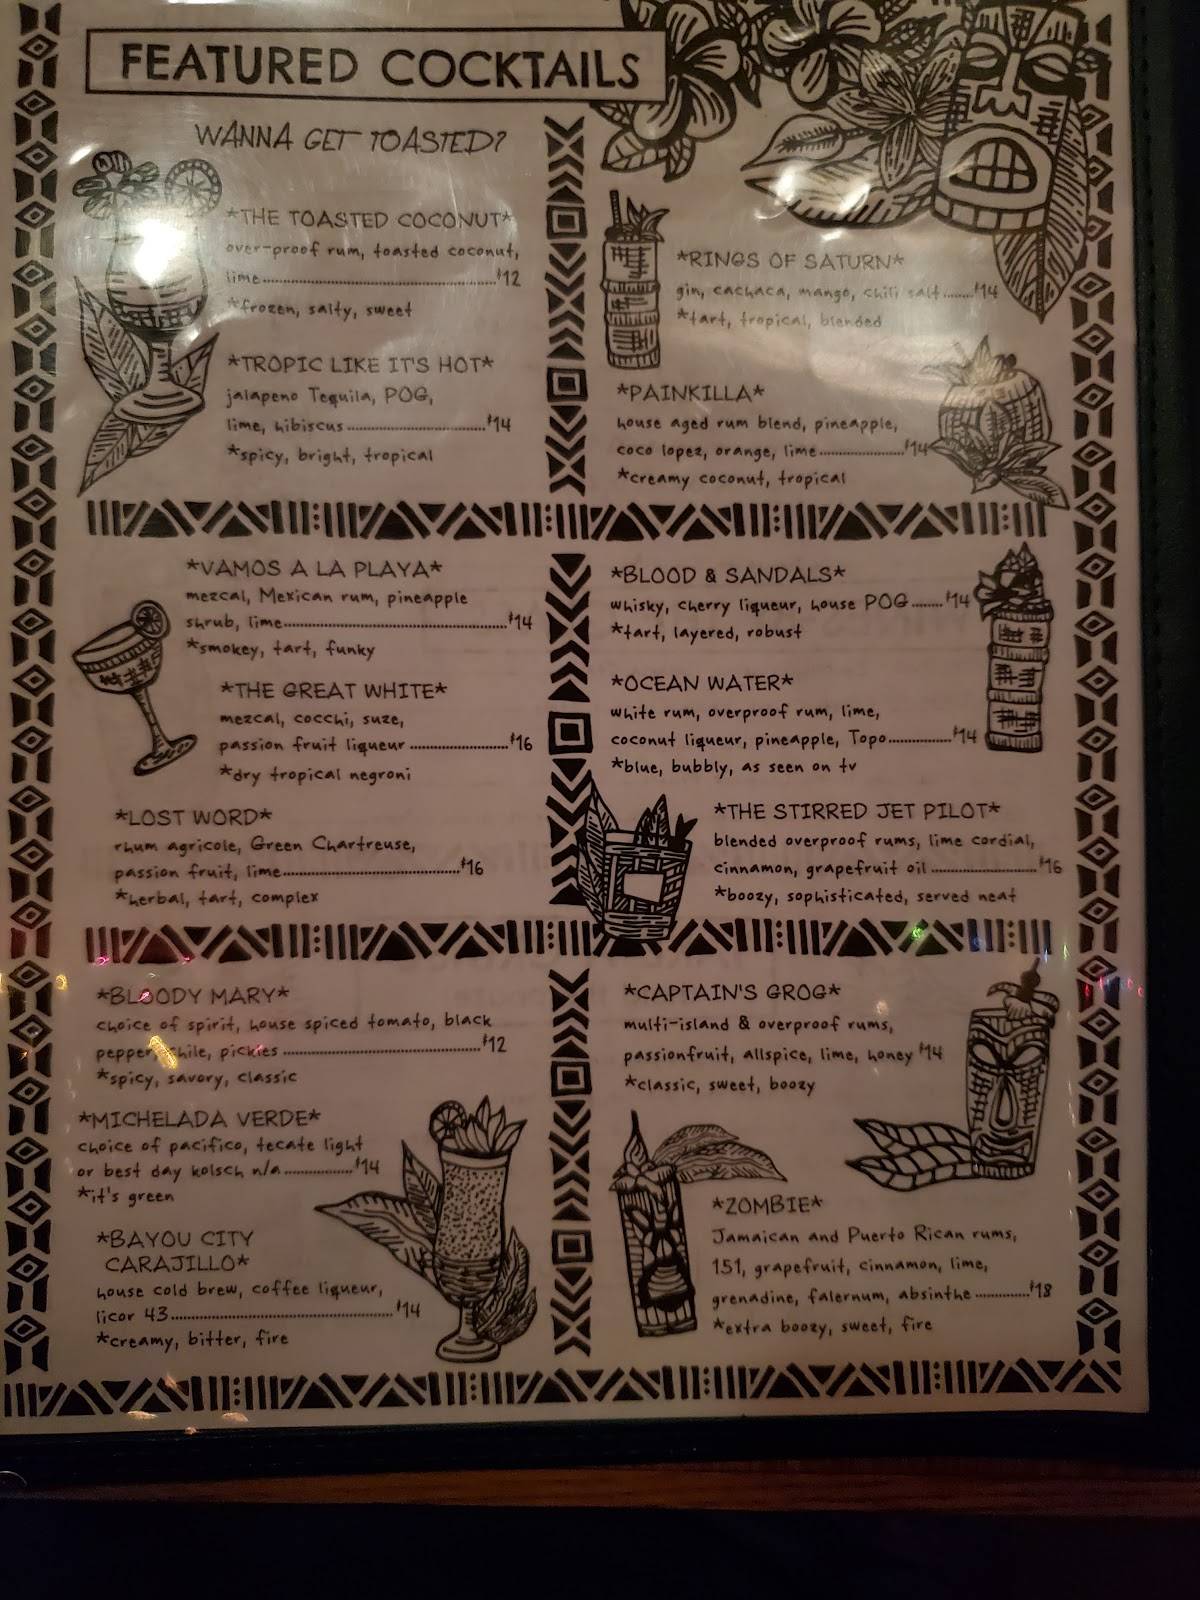 FEATURED COCKTAILS
WANNA GET TOASTED?
*THE TOASTED COCONUT*
over-proof rum, toasted coconut,
lime $12
*frozen, salty, sweet
*TROPIC LIKE IT'S HOT*
jalapeno Tequila, POG,
lime, hibiscus $14
*spicy, bright, tropical
*RINGS OF SATURN*
gin, cachaca, mango, chili salt $14
*tart, tropical, blended
*PAINKILLA*
house aged rum blend, pineapple,
coco lopez, orange, lime $14
*creamy coconut, tropical
*VAMOS A LA PLAYA*
mezcal, Mexican rum, pineapple
shrub, lime $14
*smokey, tart, funky
*THE GREAT WHITE*
mezcal, cocchi, suze,
passion fruit liqueur $16
*dry tropical negroni
*LOST WORD*
rhum agricole, Green Chartreuse,
passion fruit, lime $16
*herbal, tart, complex
*BLOOD & SANDALS*
whisky, cherry liqueur, house POG $14
*tart, layered, robust
*OCEAN WATER*
white rum, overproof rum, lime,
coconut liqueur, pineapple, Topo $14
*blue, bubbly, as seen on tv
*THE STIRRED JET PILOT*
blended overproof rums, lime cordial,
cinnamon, grapefruit oil $16
*boozy, sophisticated, served neat
*BLOODY MARY*
choice of spirit, house spiced tomato, black
pepper, chile, pickles $12
*spicy, savory, classic
*MICHELADA VERDE*
choice of pacifico, tecate light
or best day kolsch n/a $14
*it's green
*BAYOU CITY
CARAJILLO*
house cold brew, coffee liqueur,
licor 43 $14
*creamy, bitter, fire
*CAPTAIN'S GROG*
multi-island & overproof rums,
passionfruit, allspice, lime, honey $14
*classic, sweet, boozy
*ZOMBIE*
Jamaican and Puerto Rican rums,
151, grapefruit, cinnamon, lime,
grenadine, falernum, absinthe $18
*extra boozy, sweet, fire